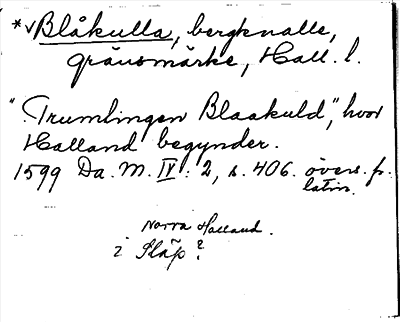 *√Blåkulla, bergknalle,
gränsmärke, Hall. l.
"Trumlingen Blaakuld", hvor
Halland begynder.
1599 Da. M. IV: 2, s. 406. övers. fr.
latin.
Norra Halland.
i Släp?